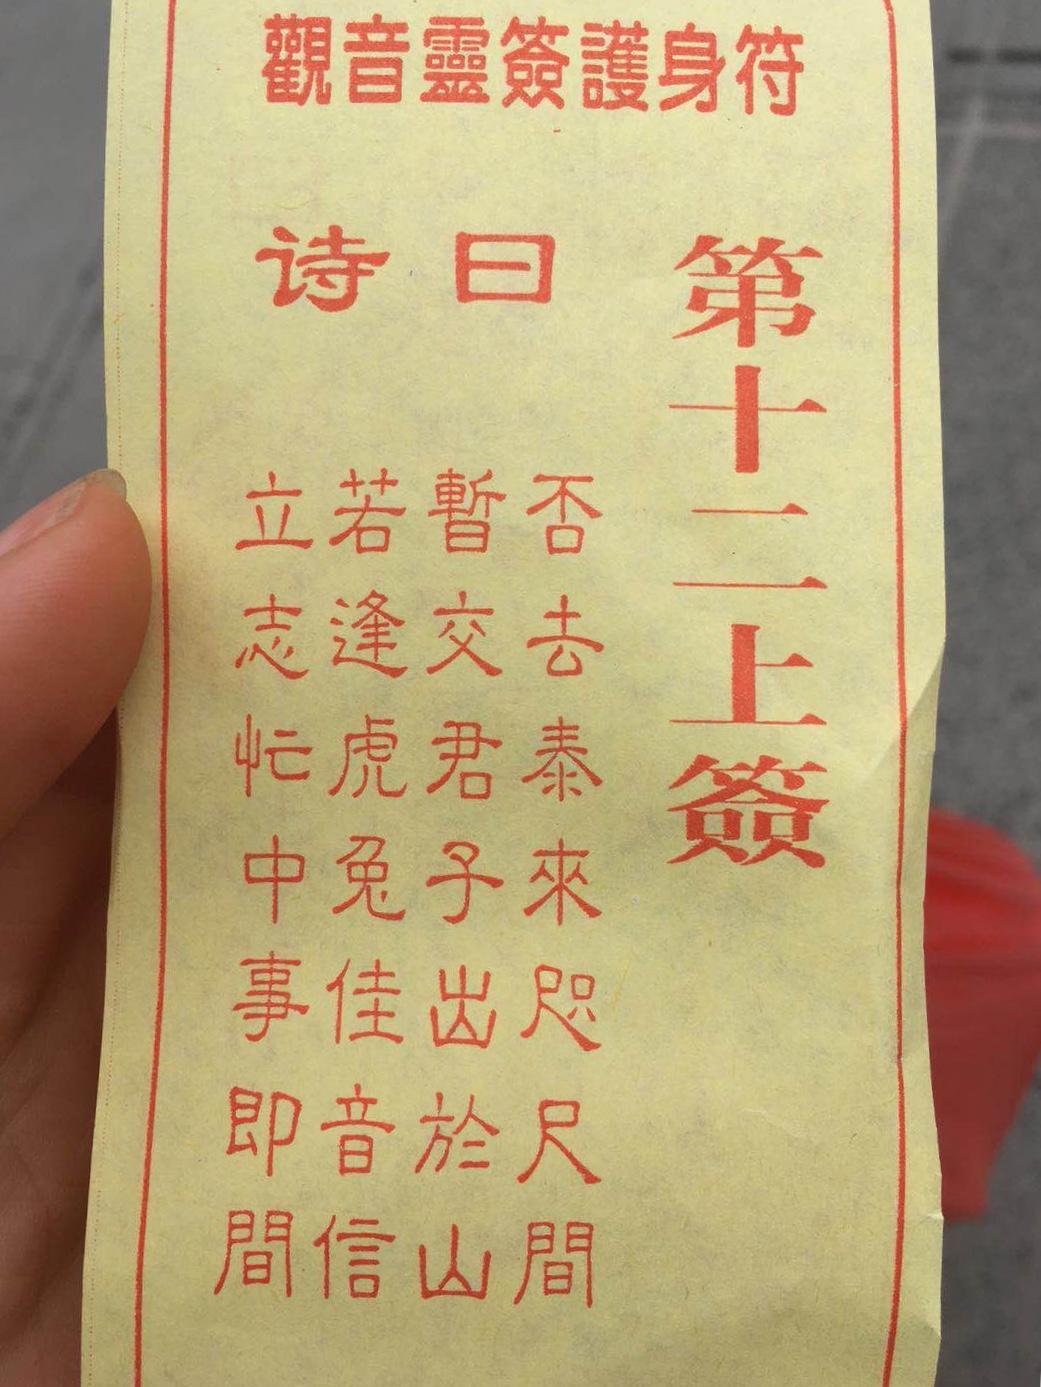 觀音靈簽護身符
第十二上簽
诗曰
否去泰來咫尺間
暫交君子出於山
若逢虎兔佳音信
立志忙中事即間